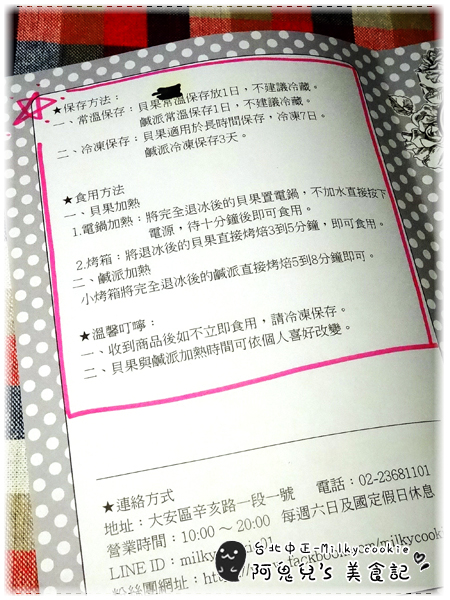 ★保存方法：
一、常溫保存：貝果常溫保存放1日，不建議冷藏。
鹹派常溫保存1日，不建議冷藏。
二、冷凍保存：貝果適用於長時間保存，冷凍7日。
鹹派冷凍保存3天。
★食用方法
一、貝果加熱
1.電鍋加熱：將完全退冰後的貝果置電鍋，不加水直接按下
電源，待十分鐘後即可食用。
2.烤箱：將退冰後的貝果直接烤焙3到5分鐘，即可食用。
二、鹹派加熱
小烤箱將完全退冰後的鹹派直接烤焙5到8分鐘即可。
★溫馨叮嚀：
一、收到商品後如不立即食用，請冷凍保存。
二、貝果與鹹派加熱時間可依個人喜好改變。
★連絡方式
地址：大安區辛亥路一段一號 電話：02-23681101
營業時間：10:00～20:00 每週六日及國定假日休息
LINE ID：milky
粉絲團網址：http
台北中正-Milky cookie
阿鬼兒's 美食記